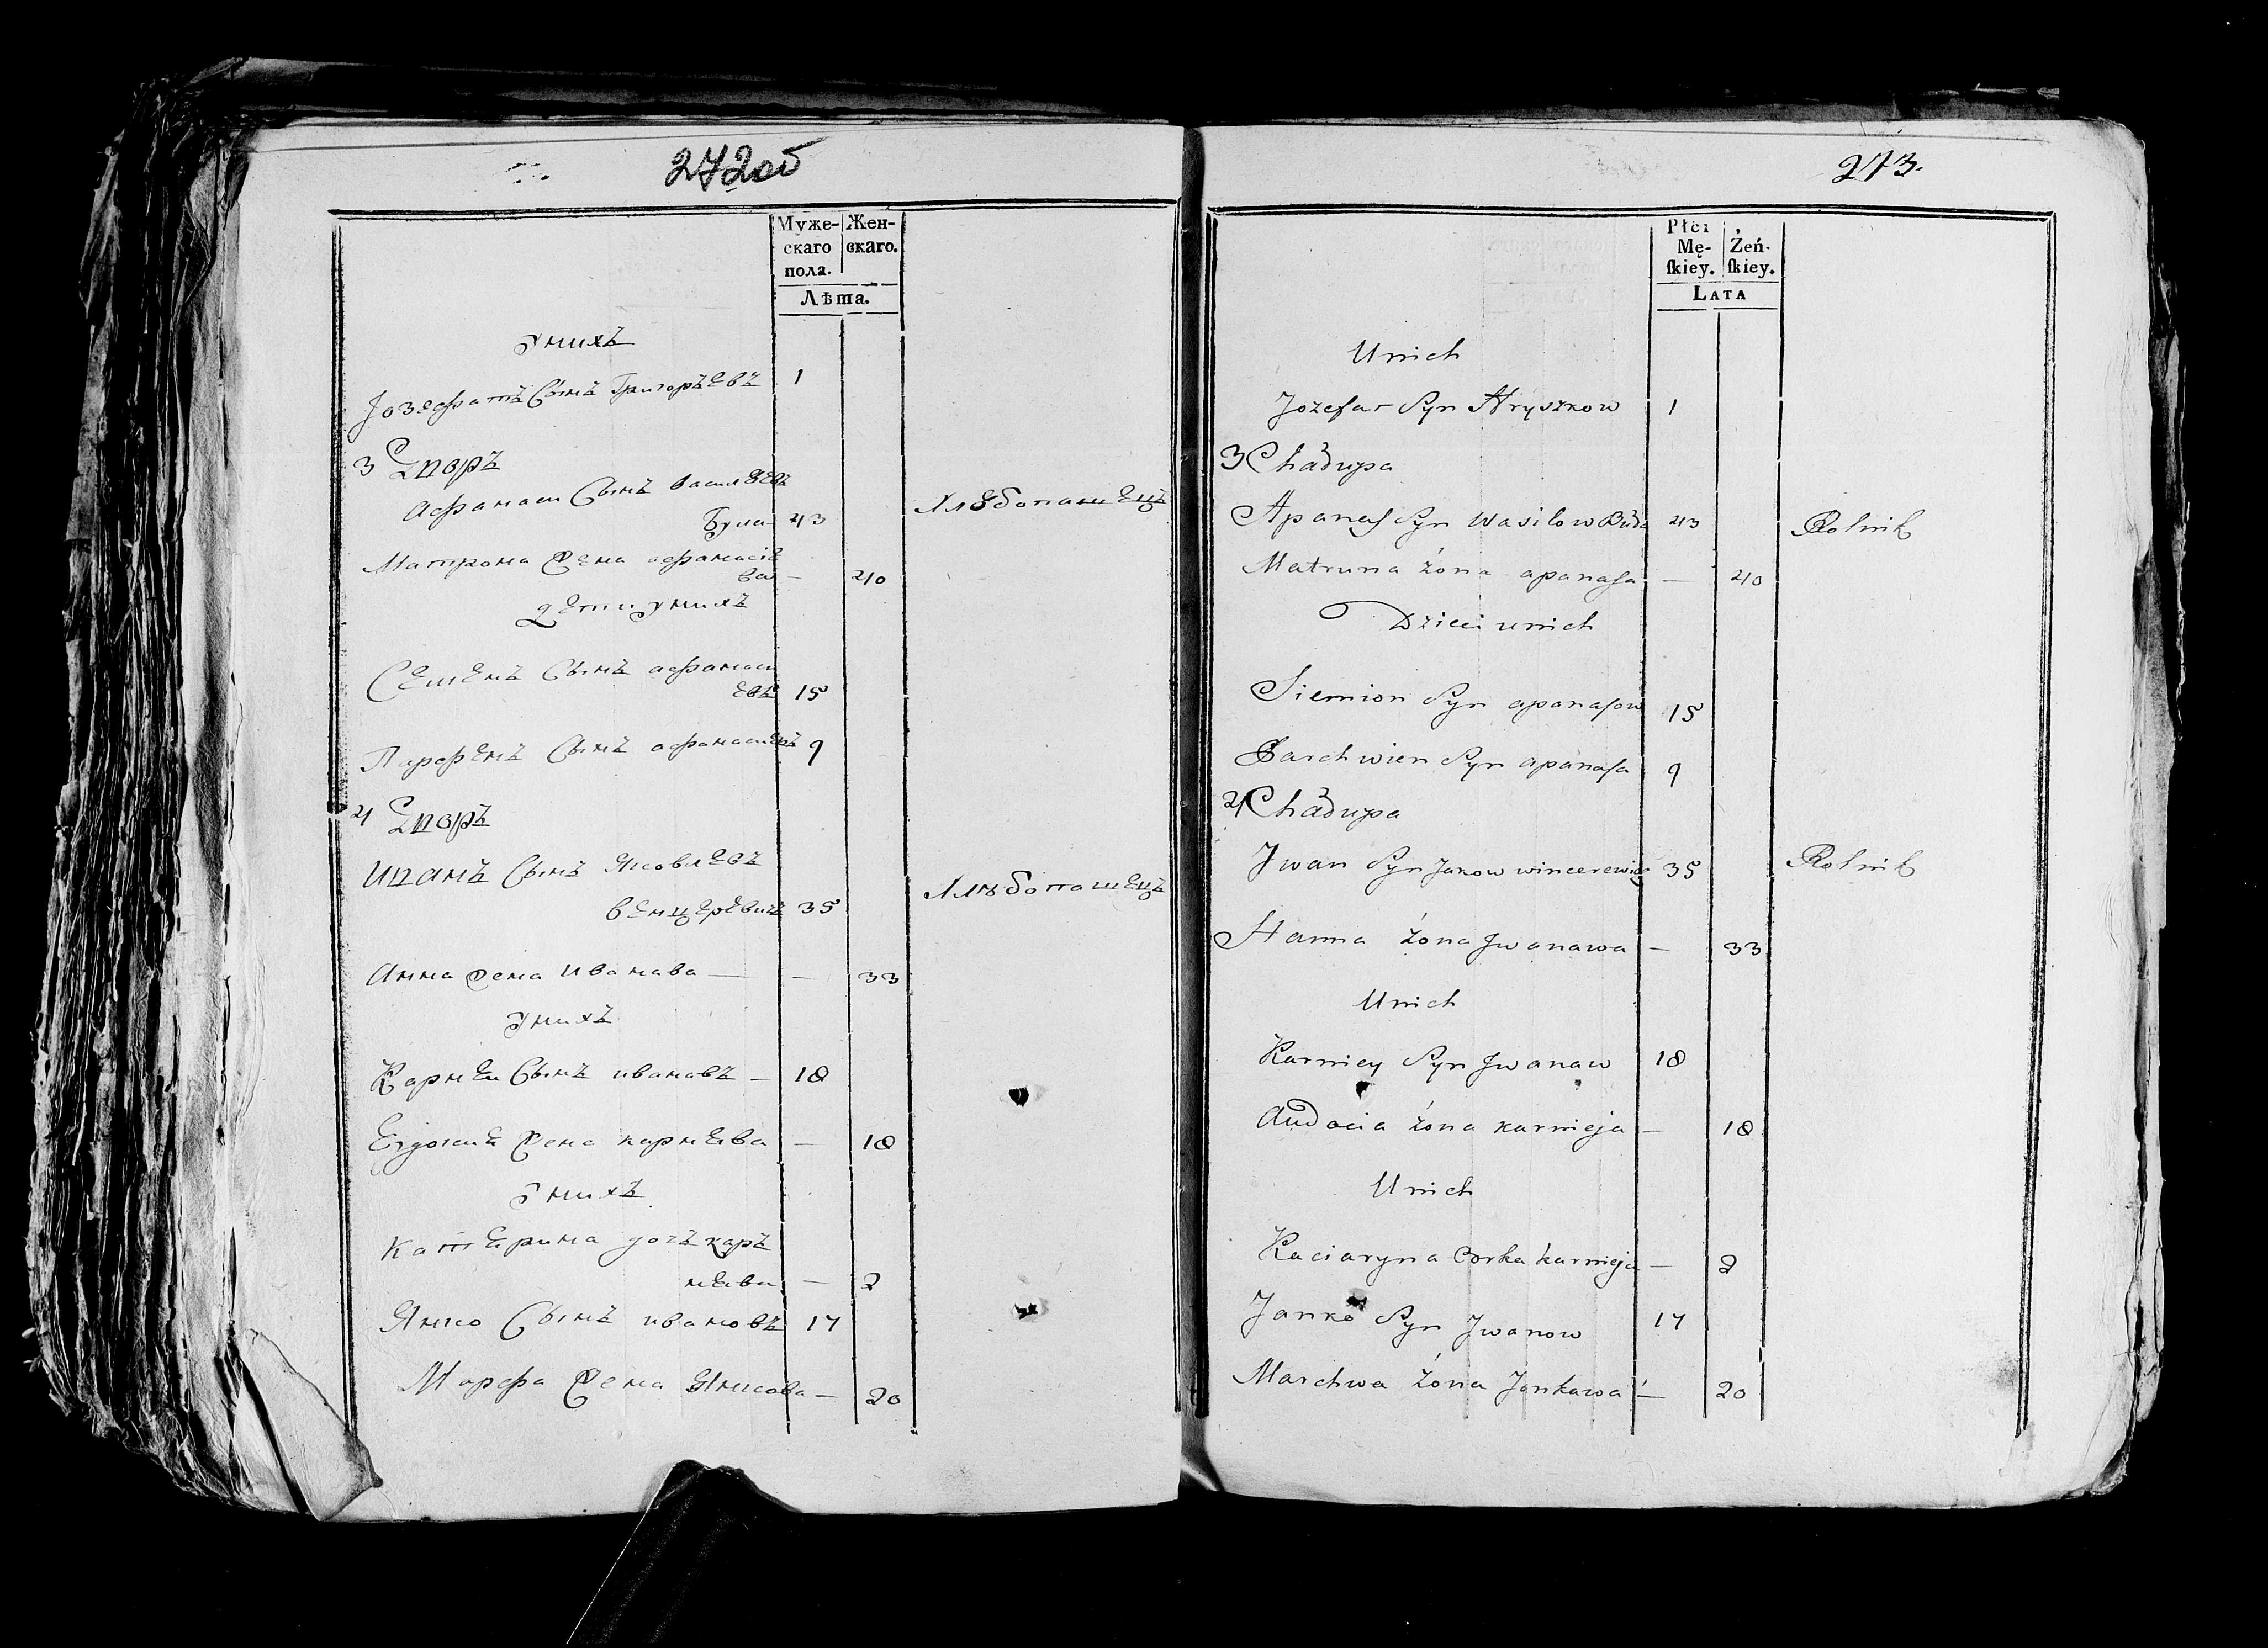 272об
Муже- Жен-
скаго скаго.
пола.
Лѣта.
У нихъ
Јозефатъ Сынъ Григорьевъ 1
3 Дворъ
Афанаси Сынъ васильевъ
Була 43 Хлѣбопашецъ
Матрона жена афанасіе
ва — 40
дети у нихъ
Семенъ Сынъ афанаси
евъ 15
Парфенъ Сынъ афанасиевъ 9
4 Дворъ
Иванъ Сынъ Яковлевъ
венцеревичъ 35 Хлѣбопашецъ
Анна жена иванава — — 33
У нихъ
Карней Сынъ ивановъ — 18
Евдокия жена карнеява — 18
У нихъ
Катерина дочъ каръ
неява — 2
Янко Сынъ ивановъ 17
Марфа жена Янкова — 20
273.
Płci
Mę- Żeń-
ſkiey. ſkiey.
LATA
Unich
Jozefat Syn Hryszkow 1
3 Chałupa
Apanaſ Syn Wasilow Buła 43 Rolnik
Matruna żóna apanaſa — 40
Dzieci unich
Siemion Syn apanaſow 15
Parchwien Syn apanaſa 9
4 Chałupa
Jwan Syn Jakow wincerewicz 35 Rolnik
Hanna żona Jwanawa — 33
Unich
Karniey Syn Jwanaw 18
Audocia żóna karnieja — 18
Unich
Kaciaryna Corka karnieja — 2
Janko Syn Jwanow 17
Marchwa żóna Jankawa — 20